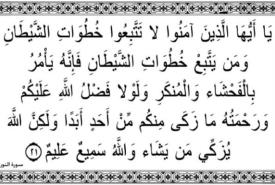 يَا أَيُّهَا الَّذِينَ آمَنُوا لَا تَتَّبِعُوا خُطُوَاتِ الشَّيْطَانِ
وَمَن يَتَّبِعْ خُطُوَاتِ الشَّيْطَانِ فَإِنَّهُ يَأْمُرُ
بِالْفَحْشَاءِ وَالْمُنكَرِ وَلَوْلَا فَضْلُ اللَّهِ عَلَيْكُمْ
وَرَحْمَتُهُ مَا زَكَى مِنكُم مِّنْ أَحَدٍ أَبَدًا وَلَكِنَّ اللَّهَ
يُزَكِّي مَن يَشَاءُ وَاللَّهُ سَمِيعٌ عَلِيمٌ ٢١
سورة النور